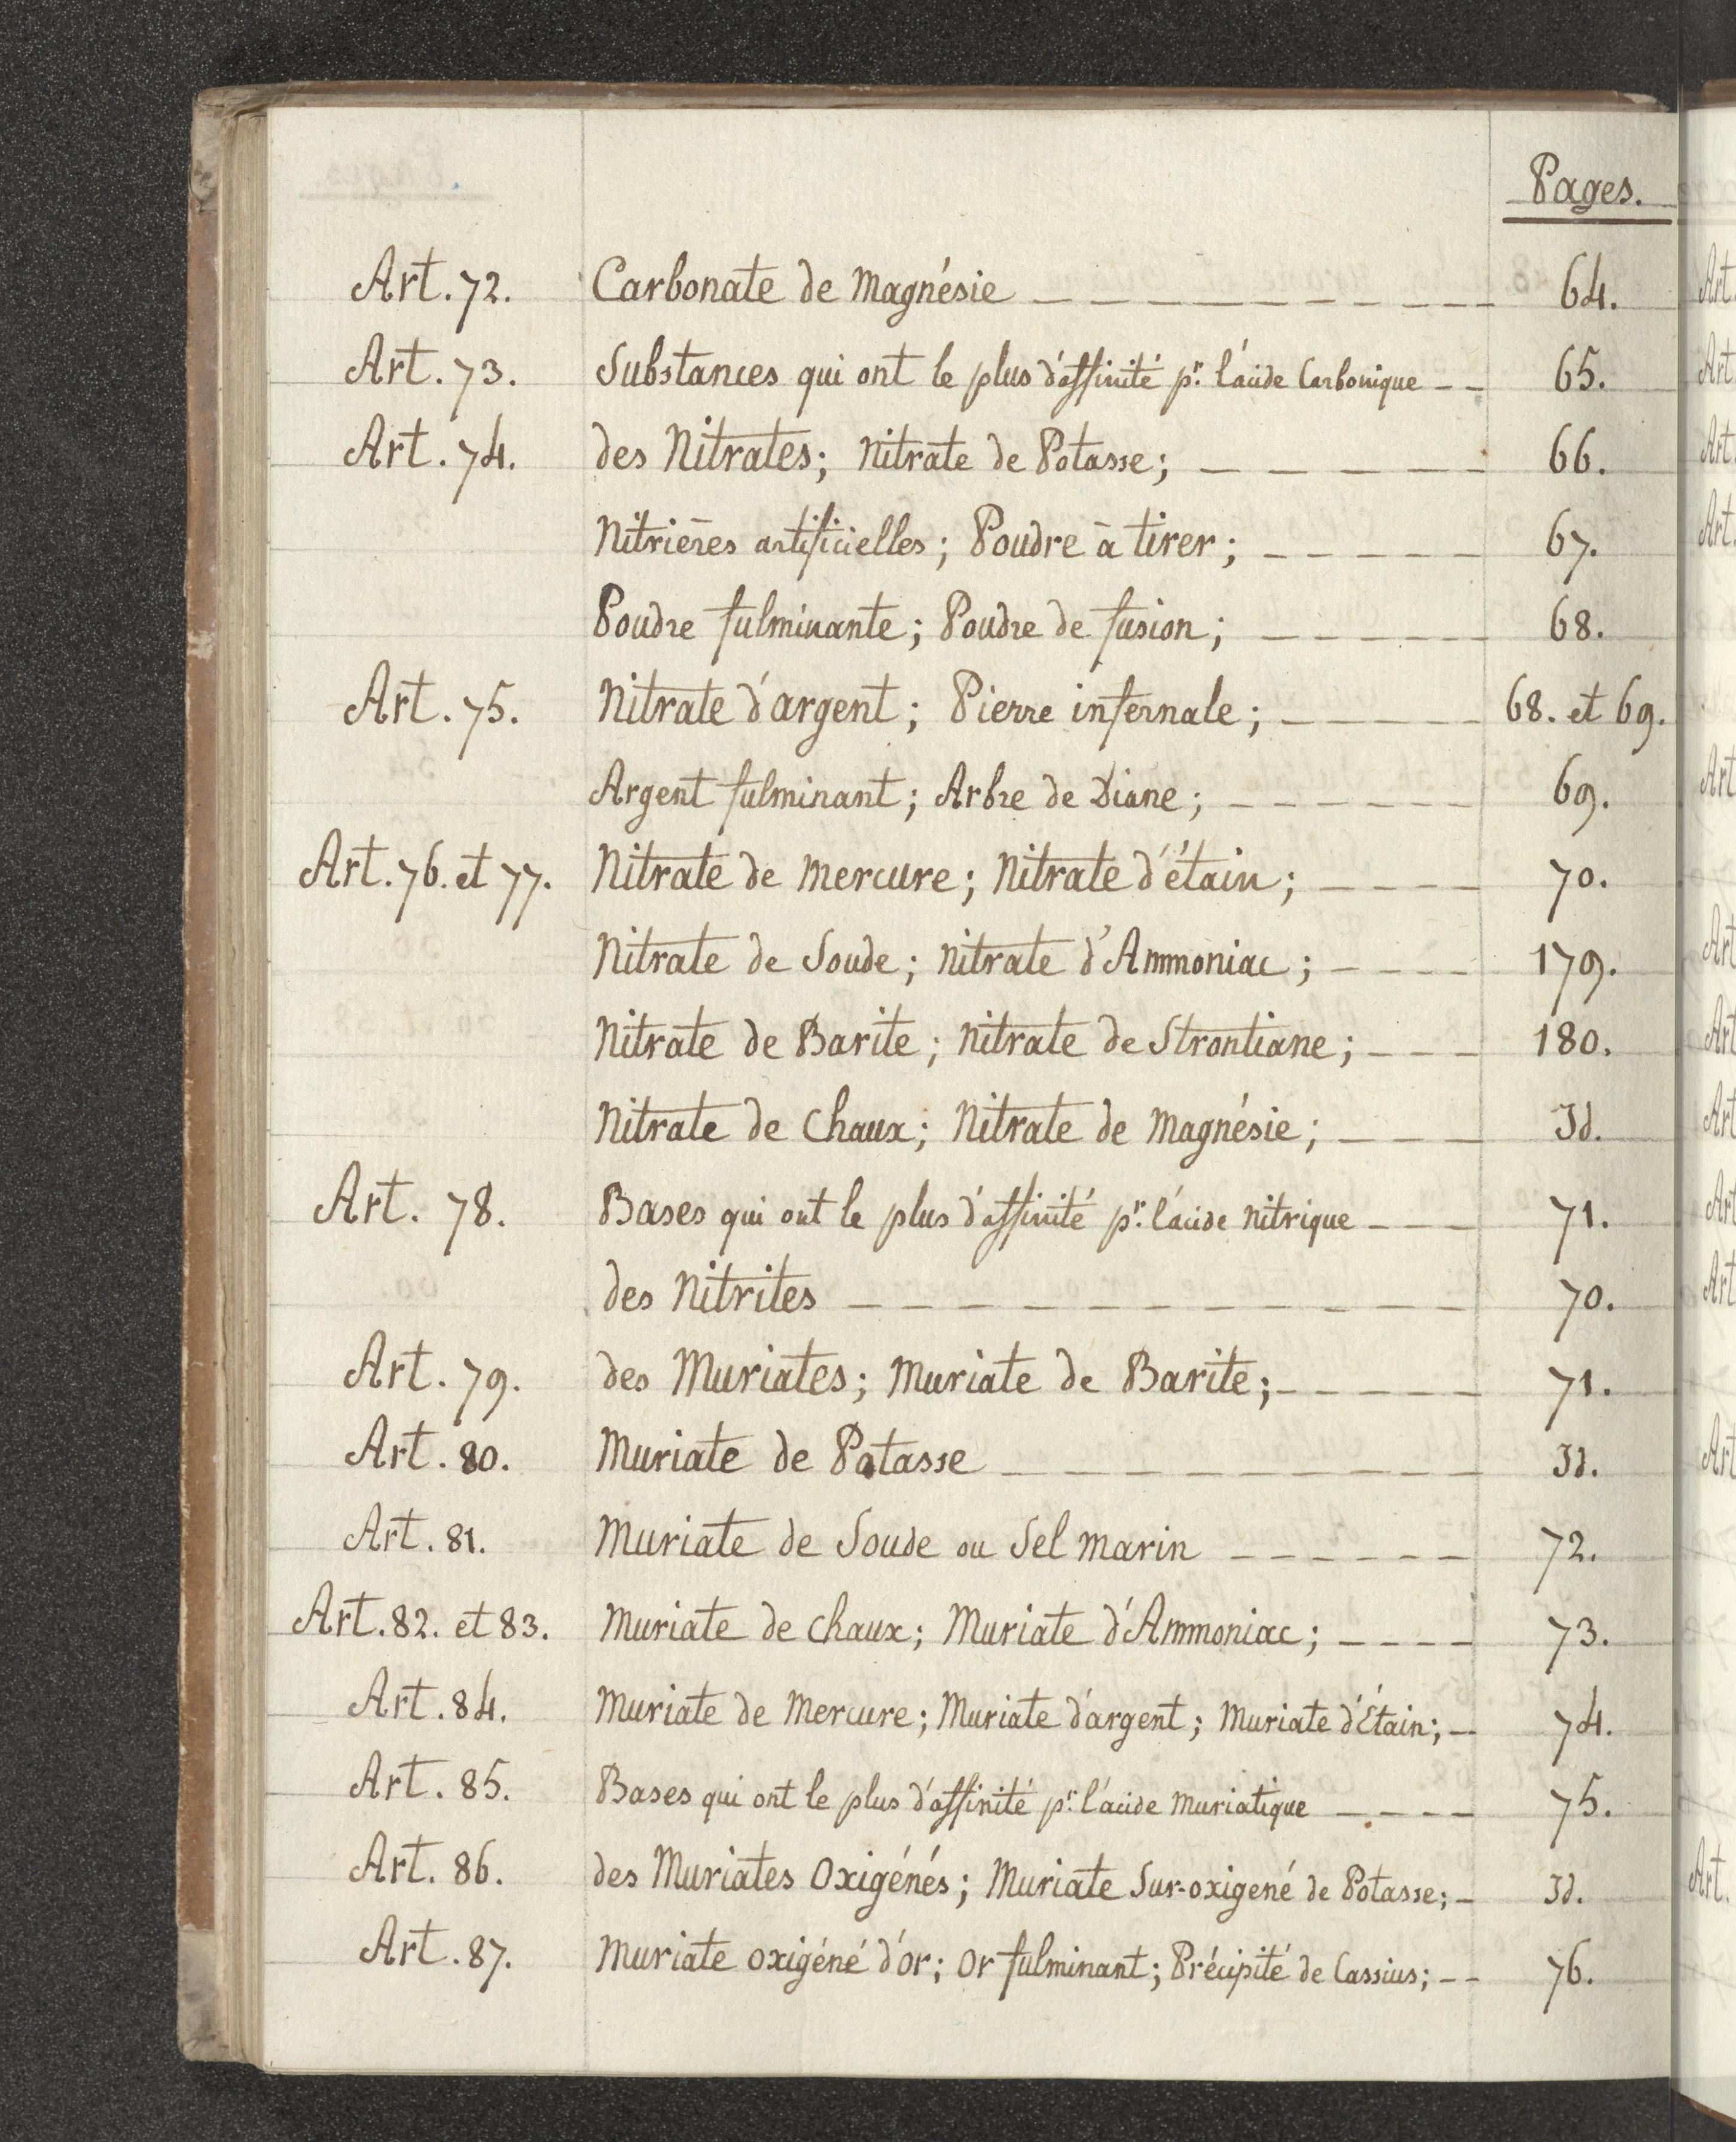 Pages.
Art. 72. Carbonate de Magnésie 64.
Art. 73. Substances qui ont le plus d'affinité pr. l'acide Carbonique 65.
Art. 74. des Nitrates; Nitrate de Potasse; 66.
Nitrières artificielles; Poudre à tirer; 67.
Poudre fulminante; Poudre de fusion; 68.
Art. 75. Nitrate d'argent; Pierre infernale; 68. et 69.
Argent fulminant; Arbre de Diane; 69.
Art. 76. et 77. Nitrate de Mercure; Nitrate d'étain; 70.
Nitrate de Soude; Nitrate d'Ammoniac; 179.
Nitrate de Barite; Nitrate de Strontiane; 180.
Nitrate de Chaux; Nitrate de Magnésie; Id.
Art. 78. Bases qui ont le plus d'affinité pr. l'acide Nitrique 71.
des Nitrites 70.
Art. 79. des Muriates; Muriate de Barite; 71.
Art. 80. Muriate de Potasse Id.
Art. 81. Muriate de Soude ou Sel marin 72.
Art. 82. et 83. Muriate de Chaux; Muriate d'Ammoniac; 73.
Art. 84. Muriate de Mercure; Muriate d'argent; Muriate d'Étain; 74.
Art. 85. Bases qui ont le plus d'affinité pr. l'acide Muriatique 75.
Art. 86. des Muriates Oxigénés; Muriate Sur-oxigené de Potasse; Id.
Art. 87. Muriate oxigéné d'or; Or fulminant; Précipité de Cassius; 76.